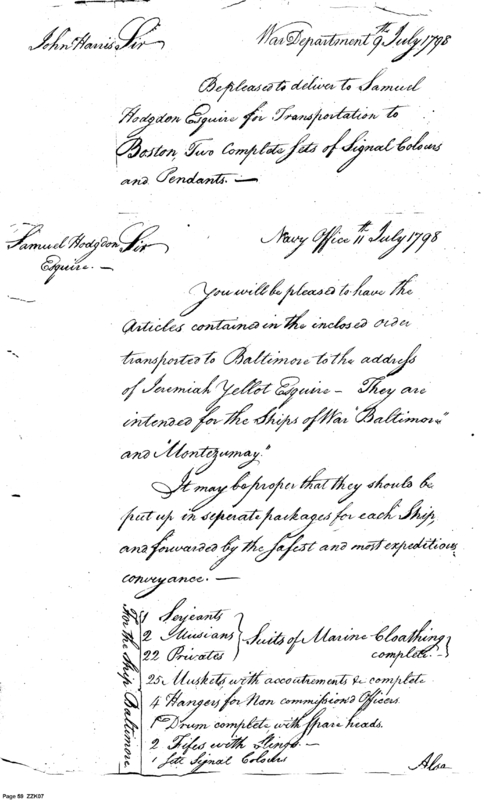 John Harris Sir War Department 9th July 1798
Be pleased to deliver to Samuel
Hodgdon Esquire for Transportation to
Boston, Two Complete Sets of Signal Colours
and Pendants. —
Samuel Hodgdon Sir Navy Office 11th July 1798
Esquire. —
You will be pleased to have the
Articles contained in the inclosed order
transported to Baltimore to the address
of Jeremiah Yellot Esquire — They are
intended for the Ships of War "Baltimore"
and "Montezumay."
It may be proper that they should be
put up in seperate packages for each Ship
and forwarded by the safest and most expeditious
conveyance. —
For the Ship Baltimore
1 Serjeants
2 Musians } Suits of Marine Cloathing }
22 Privates complete —
25 Muskets with accoutrements &c complete
4 Hangers for Non commissiond Officers
1 Drum complete with spare heads.
2 Fifes with Slings. —
1 Sett Signal Colours
Also
Page 59 ZZK07